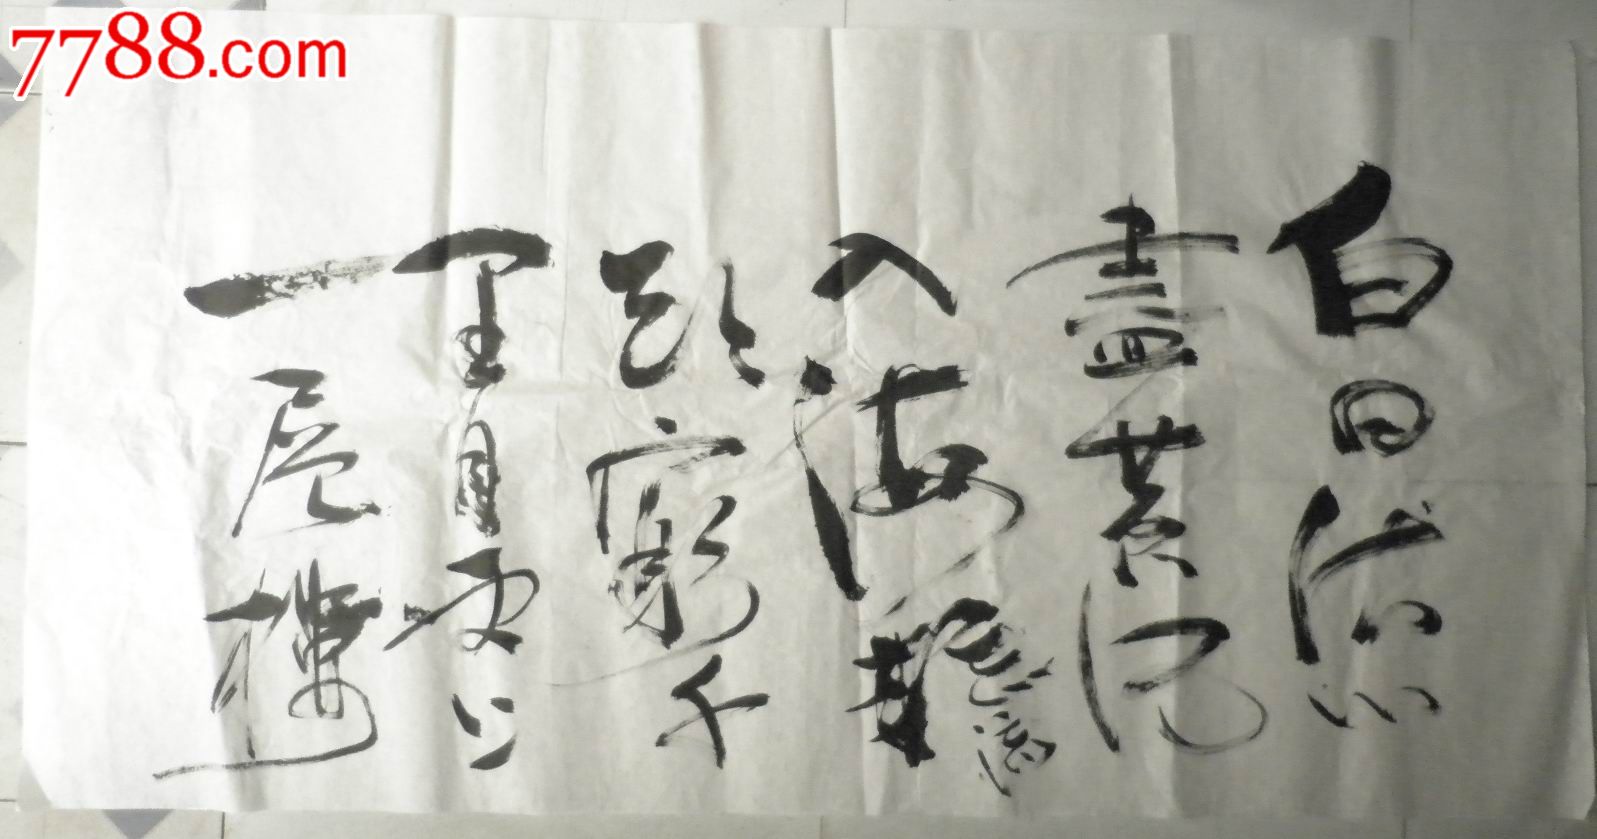 7788.com
白日依山
盡黄河
入海
欲窮千
里目更上
一层樓